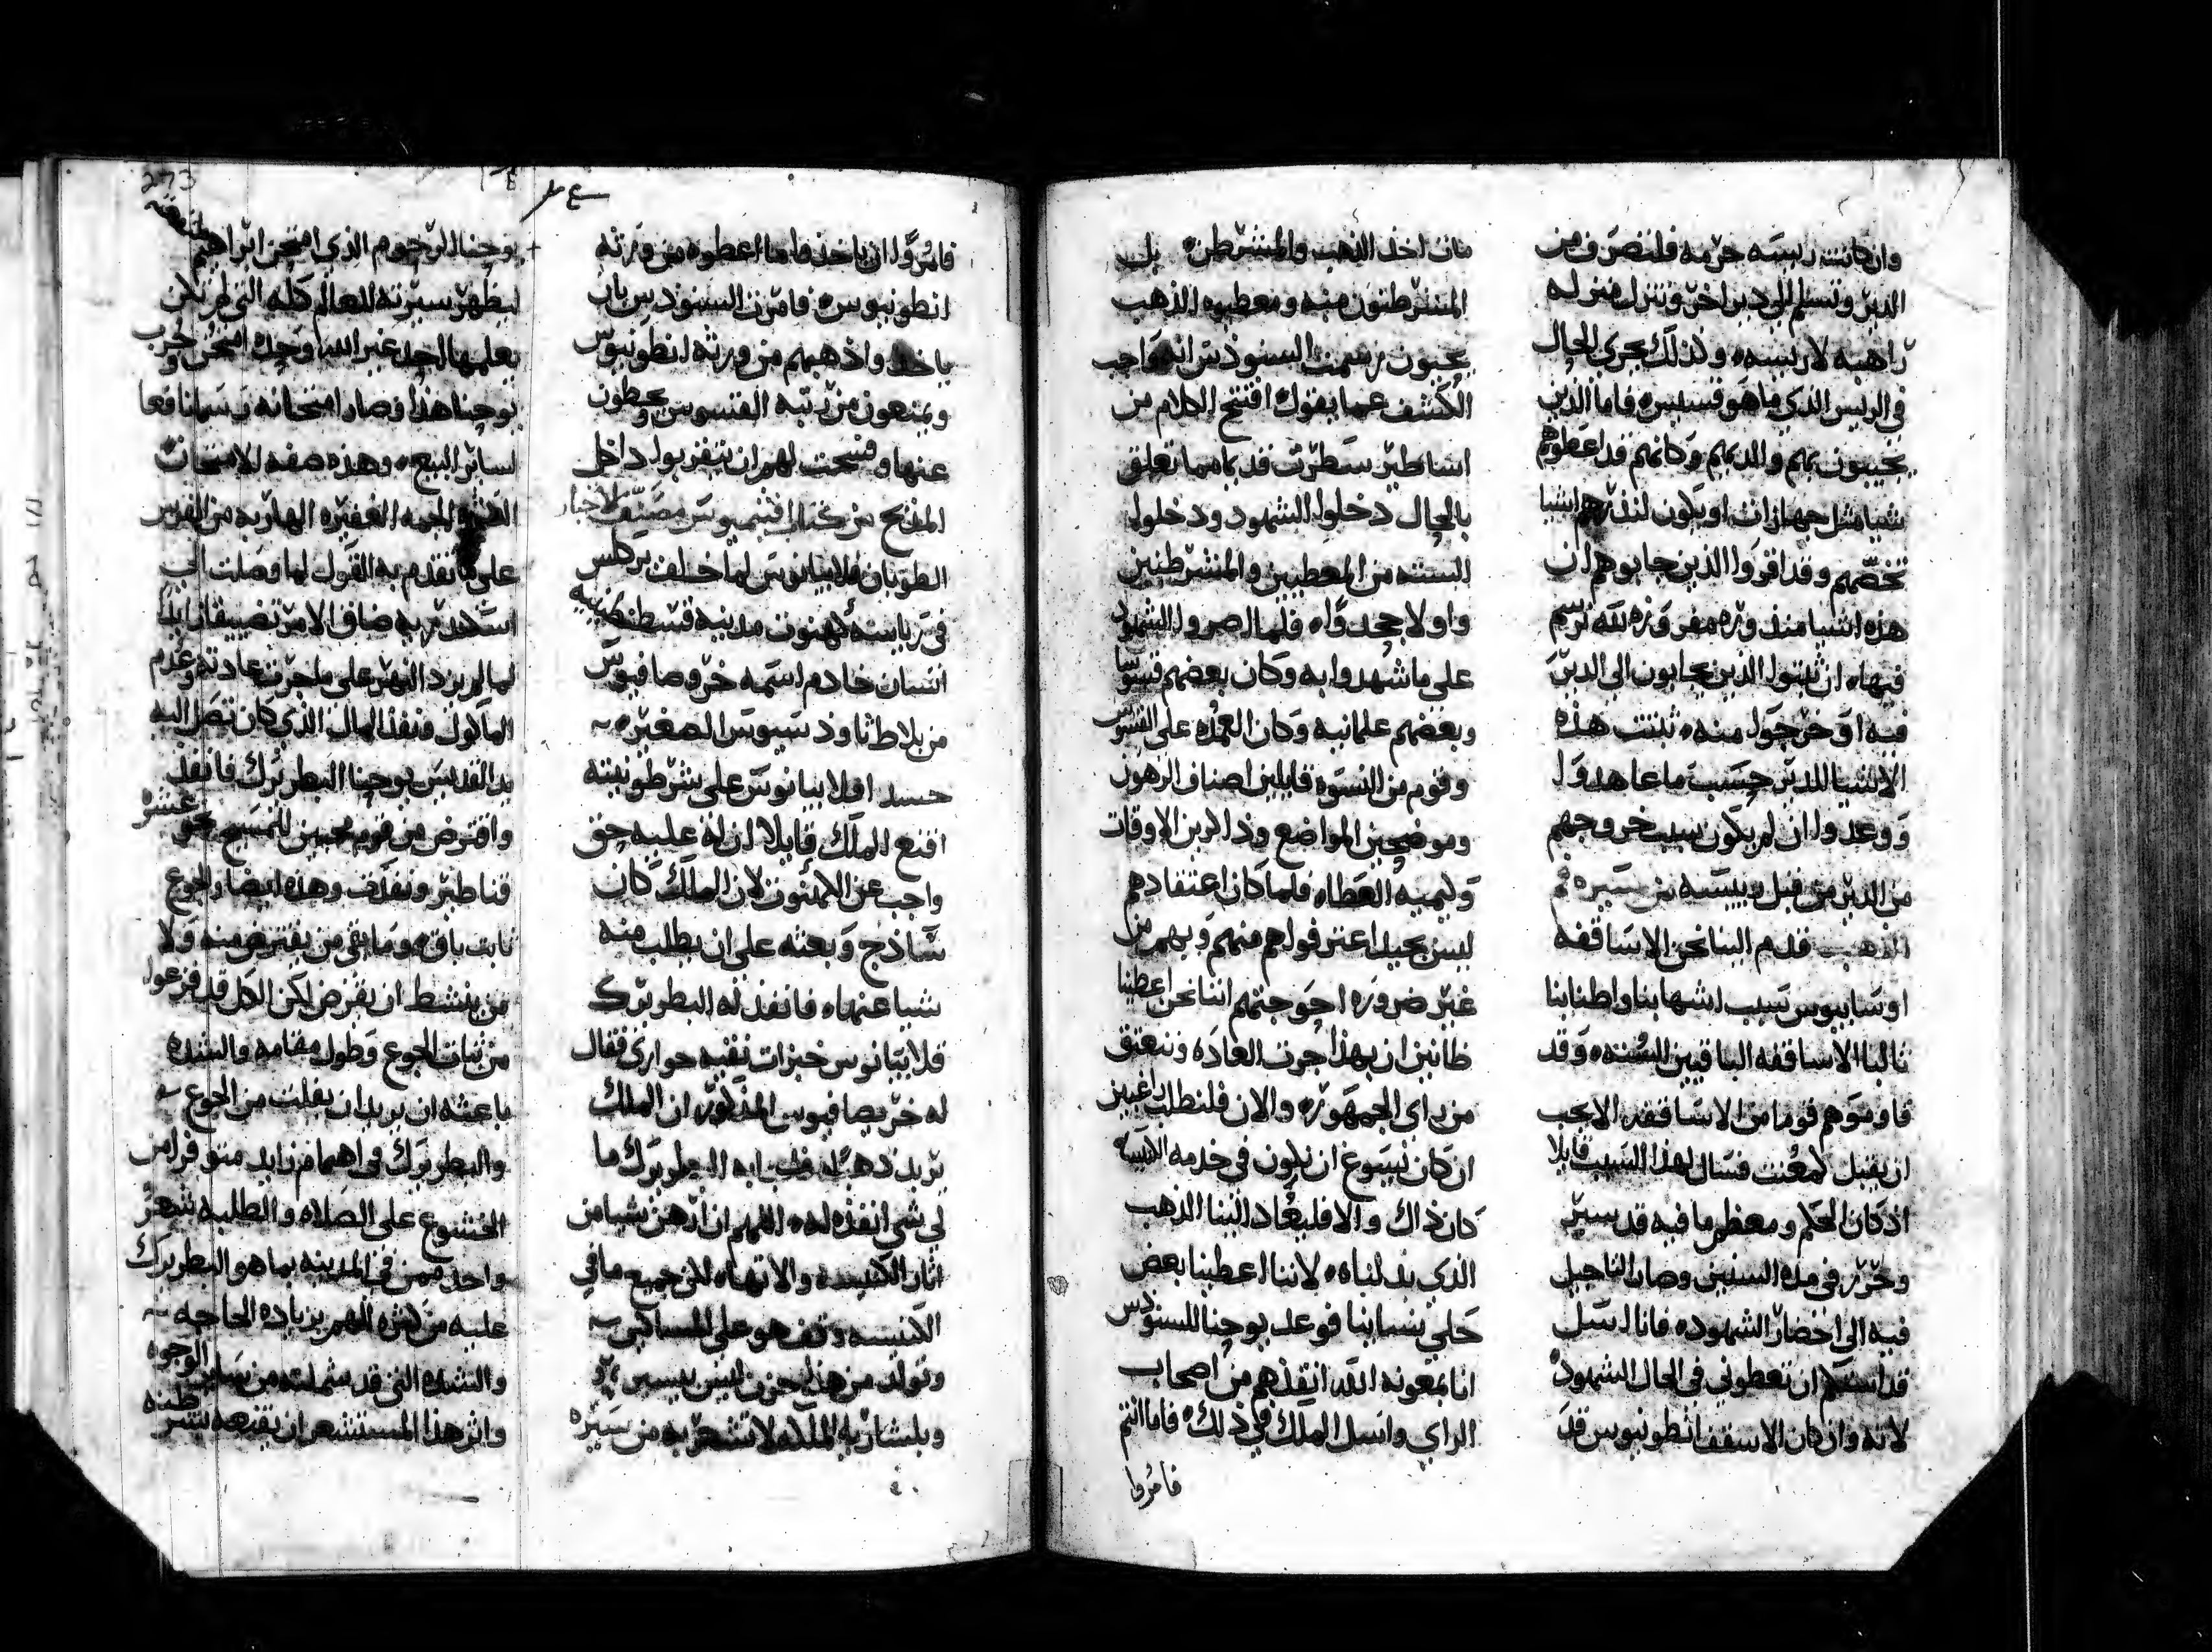 وان كانت ريسه حرمه فلتصرف من
الدير وتسلم الى دير اخر وتنزل منزله
راهبه لا ريسه، وكذلك يجرى الحال
فى الريس الذي ما هو قسيس، فاما الذين
يجيبون بهم والديهم وكانهم قد اعطوهم
شيا مثل جهازات او يكون لنفرهم اشيا
تخصهم وقد اقروا الذين جابوهم ان
هذه اشيا منذوره مفروزه لله نرسم
فيها، ان ثبتوا الذين يجابون الى الدير
فيه او خرجوا منه، تثبت هذه
الاشيا للدير حسب ما عاهدوا
ووعدوا ان لم يكون سبب خروجهم
من الدير من قبل رييسه من سيره
الذهب قدم الينا نحن الاساقفه
اوسابيوس بسبب اشهابنا واطنابنا
ثالبا الاساقفه الباقيين السته، وقد
فاوضوهم قوما من الاساقفه الا يجب
ان يقبل لمعنت فسال لهذا السبب قايلا
اذ كان الحكم ومعظم ما فيه قد سير
وحرر فى مده السنين وصار التاجيل
فيه الى احضار الشهود، فانا اسل
قداستكم ان تعطوني فى الحال الشهود
لانه وان كان الاسقف انطونيوس قد
مات اخذ الذهب والمشرطن، بل
المتشرطنون منه ومعطيوه الذهب
يحيون رسمت السنودس انه واجب
الكشف عما يقول، افتتح الكلام من
اساطير سطرت قديما مما تعلق
بالحال دخلوا الشهود ودخلوا
السته من المعطيين والمتشرطنين
واولا جحدوا، فلما اصروا الشهود
على ما شهدوا به وكان بعضهم قسوسا
وبعضهم علمانيه وكان العمده على القسوس
وقوم من النسوه قايلين اصناف الرهون
وموضحين المواضع وذاكرين الاوقات
وكميه العطا، فلما كان اعتقادهم
ليس بجيد اعترفوا هم منهم وبهم من
غير ضروره احوجتهم اننا نحن اعطينا
ظانين ان بهذا جرت العاده وننعتق
من راى الجمهوره، والان فلنطلب راغبين
ان كان يسوغ ان نكون في خدمه الكنيسه
كان ذاك والا فليعاد الينا الذهب
الذي بذلناه، لاننا اعطينا بعض
حلي نساينا فوعد يوحنا للسنودس
انا بمعونه الله انقذهم من اصحاب
الراي واسل الملك في ذلك، فاما انتم
فامروا
فامروا ان ياخذوا ما اعطوه من ورثه
انطونيوس، فامرت السنودس بان
ياخذوا ذهبهم من ورثه انطونيوس
ويمنعون من رتبه القسوس ويحطون
عنها وفسحت لهم ان يتقربوا داخل
المذبح من كتاب اقتيميوس مصنف الاخبار
الطوبان فلابيانوس لما خلف بركلس
فى رياسه كهنوت مدينه قسطنطينيه
انسان خادم اسمه خروصافيوس
من بلاط ثاوذسيوس الصغير، ~
حسد افلابيانوس على شرطونيته
اقنع الملك قايلا ان له عليه حق
واجب عن الامنوت لان الملك كان
ساذج وبعثه على ان يطلب منه
شيا عنها، فانفذ له البطريرك
فلابيانوس خبزات نقيه حوارى فقال
له خريصافيوس المذكور، ان الملك
يريد ذهبا، فاجابه البطريرك ما
لي شي انفذه له، اللهم ان ارهن شيا من
اثار الكنيسه والاتها، لكن جميع ما في
الكنيسه وقف هو على المساكين ~
وتولد من هذا حزن ليس بيسير
وبلشاريه الملكه لا تشعر به من سيره
273
يوحنا المرحوم الذي امتحن ابراهيم
ليظهر سيرته للعالم كله التي لم يكن
يعلمها احد غير الله وحده امتحن وجرب
يوحنا هذا وصار امتحانه رسما نافعا
لساير البيع، وهذه صفه الامتحان
الكثيره الجمه الغفيره الهاربه من الفرس
على ما تقدم به القول لما وصلت الى
اسكندريه ضاق الامر تضييقا زايدا
لما لم يزد النهر على ما جرت عادته وعدم
الماكول فنفذ المال الذي كان تصل اليه
يد القديس يوحنا البطريرك فانفذ
واقترض من قوم محبين للمسيح نحو عشره
قناطير ونفذت وهذه ايضا والجوع
ثابت باقى، وما بقى من يقترض منه ولا
من ينشط ان يقرض لكن الكل قد فزعوا
من ثبات الجوع وطول مقامه والشده
باعثه ان يريد ان يفلت من الجوع ~
والبطريرك فى اهتمام زايد متوفر امس
الخشوع على الصلاه والطلبه
واحد ممن فى المدينه بما هو البطريرك
عليه من كثره الهم بزياده الحاجه ~
والشده التي قد شملته من ساير الوجوه
واثر هذا المستشعر ان يقنعه بشرطنه